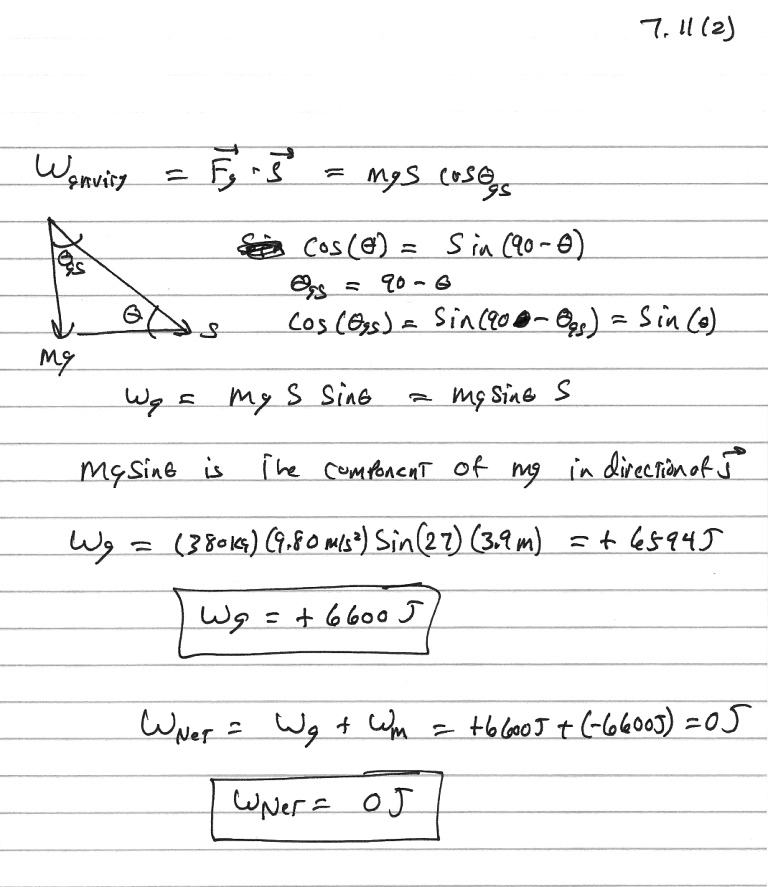 7.11(2)
Wgravity = F⃗g · S⃗ = mgS cosθgs
cos(θ) = Sin(90-θ)
θgs = 90-θ
cos(θgs) = Sin(90-θgs) = Sin(θ)
θgs
θ
S
Mg
Wg = mg S Sinθ = mgSinθ S
MgSinθ is The component of mg in direction of S⃗
Wg = (380kg)(9.80 m/s²) Sin(27)(3.9m) = + 6594J
Wg = + 6600 J
WNet = Wg + Wm = +6600J + (-6600J) = 0J
WNet = 0J